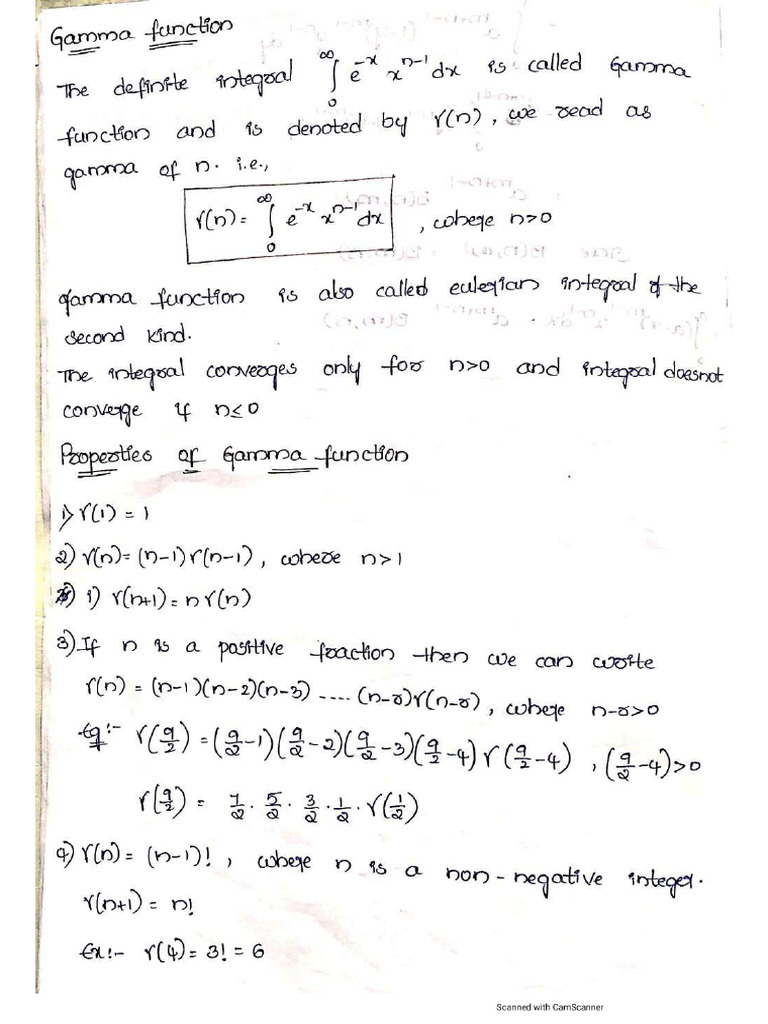 Gamma function
The definite integral ∫₀^∞ e^{-x} x^{n-1} dx is called Gamma
function and is denoted by γ(n), we read as
gamma of n. i.e.,
γ(n) = ∫₀^∞ e^{-x} x^{n-1} dx , where n>0
gamma function is also called eulerian integral of the
second kind.
The integral converges only for n>0 and integral doesnot
converge if n≤0
Properties of Gamma function
1) γ(1) = 1
2) γ(n) = (n-1) γ(n-1), where n>1
1) γ(n+1) = n γ(n)
3) If n is a positive fraction then we can write
γ(n) = (n-1)(n-2)(n-3) .... (n-r) γ(n-r), where n-r>0
Eg:- γ(9/2) = (9/2-1)(9/2-2)(9/2-3)(9/2-4) γ(9/2-4), (9/2-4)>0
γ(9/2) = 7/2 · 5/2 · 3/2 · 1/2 · γ(1/2)
4) γ(n) = (n-1)! , where n is a non-negative integer.
γ(n+1) = n!
Ex:- γ(4) = 3! = 6
Scanned with CamScanner